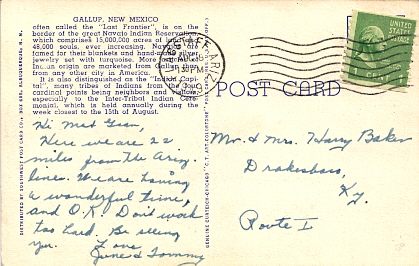 GALLUP, NEW MEXICO
often called the "Last Frontier", is on the
border of the great Navajo Indian Reservation,
which comprises 15,000,000 acres of land and
48,000 souls, ever increasing. Navajos are
famed for their blankets and hand-made silver
jewelry set with turquoise. More
In. an origin are marketed from Gallup than
from any other city in America.
It is also distinguished as the "Indian Capi-
tal", many tribes of Indians from the four
cardinal points being neighbors and visitors,
especially to the Inter-Tribal Indian Cere-
monial, which is held annually during the
week closest to the 15th of August.
Hi
Here we are 22
miles from the Ariz.
lines. We are having
a wonderful time,
and O.K. Don't work
too hard. Be seeing
you. Love
June & Tommy
DISTRIBUTED BY SOUTHWEST POST CARD CO., ALBUQUERQUE, N. M.
GENUINE CURTEICH-CHICAGO "C.T. ART-COLORTONE" POST CARD
ARIZ.
PM
UNITED
STATES
POSTAGE
1¢
POST CARD
Mr. & Mrs. Harry Baker
Drakesboro,
Ky.
Route 1